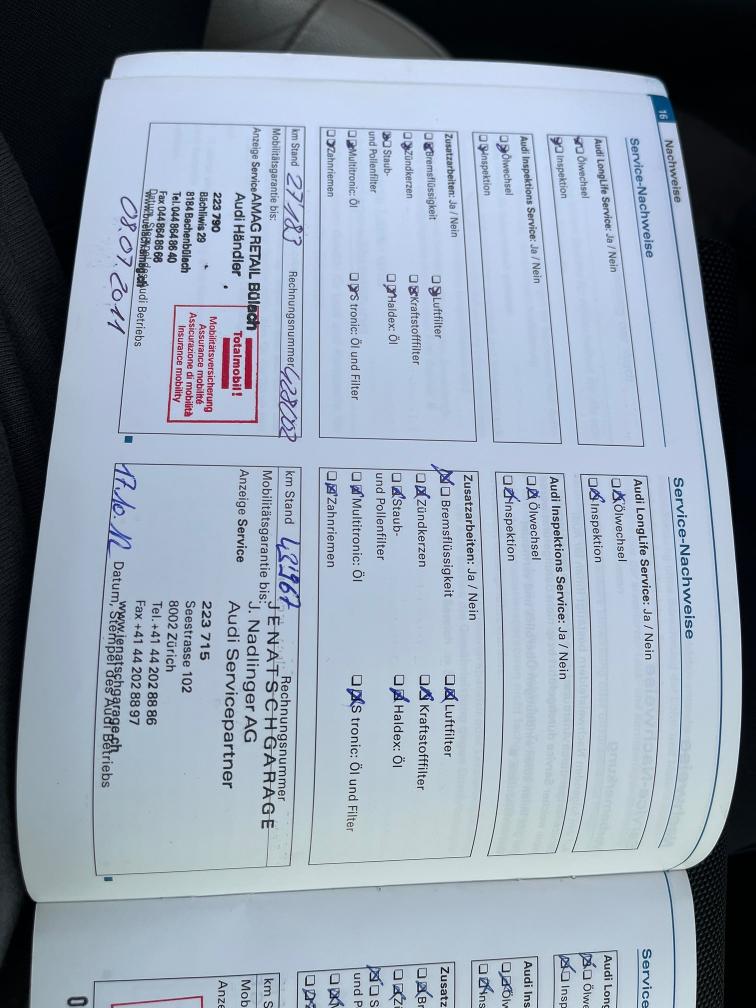 16
Nachweise
Service-Nachweise
Audi LongLife Service: Ja / Nein
Ölwechsel
Inspektion
Audi Inspektions Service: Ja / Nein
Ölwechsel
Inspektion
Zusatzarbeiten: Ja / Nein
Bremsflüssigkeit
Luftfilter
Zündkerzen
Kraftstofffilter
Staub-
und Pollenfilter
Haldex: Öl
Multitronic: Öl
S tronic: Öl und Filter
Zahnriemen
km Stand 27183
Rechnungsnummer
Mobilitätsgarantie bis:
Anzeige Service
AMAG RETAIL Bülach
Audi Händler
223 790
Bächliwis 29
8184 Bachenbülach
Tel. 044 864 86 40
Fax 044 864 86 66
Audi Betriebs
08.07.2011
Totalmobil!
Mobilitätsversicherung
Assurance mobilité
Assicurazione di mobilità
Insurance mobility
Service-Nachweise
Audi LongLife Service: Ja / Nein
Ölwechsel
Inspektion
Audi Inspektions Service: Ja / Nein
Ölwechsel
Inspektion
Zusatzarbeiten: Ja / Nein
Bremsflüssigkeit
Luftfilter
Zündkerzen
Kraftstofffilter
Staub-
und Pollenfilter
Haldex: Öl
Multitronic: Öl
S tronic: Öl und Filter
Zahnriemen
km Stand 43'967
Rechnungsnummer
Mobilitätsgarantie bis:
JENATSCHGARAGE
Anzeige Service
J. Nadlinger AG
Audi Servicepartner
223 715
Seestrasse 102
8002 Zürich
Tel. +41 44 202 88 86
Fax +41 44 202 88 97
www.jenatschgarage.ch
17.10.12 Datum, Stempel des Audi Betriebs
Service
Audi
Audi Ins
Zusatz
km S
Mob
Anze